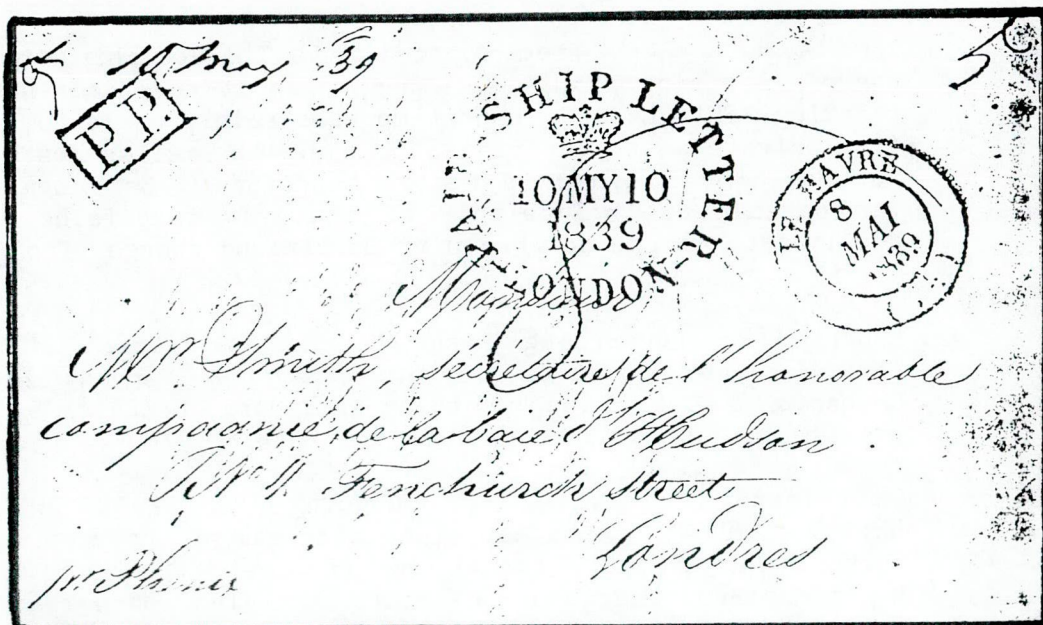 10 May 39
P.P.
SHIP LETTER
10 MY 10
1839
LONDON
LE HAVRE
8
MAI
1839
Monsieur
Mr Smith, secrétaire de l'honorable
compagnie, de la baie d'Hudson.
No 4 Fenchurch Street
Londres
pr Phenix